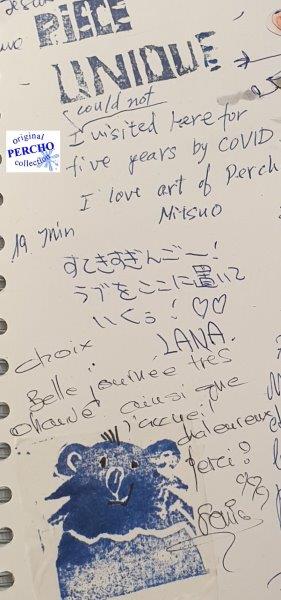 PIECE
UNIQUE
could not
I visited here for
five years by COVID
I love art of Perch
Mitsuo
original
PERCHO
collection
19. min
すてきすぎんごー!
ラブをここに置いて
いくぅ! ♡♡
LANA.
choix
Belle journée très
chaude ainsi que
l'accueil
chaleureux
merci!